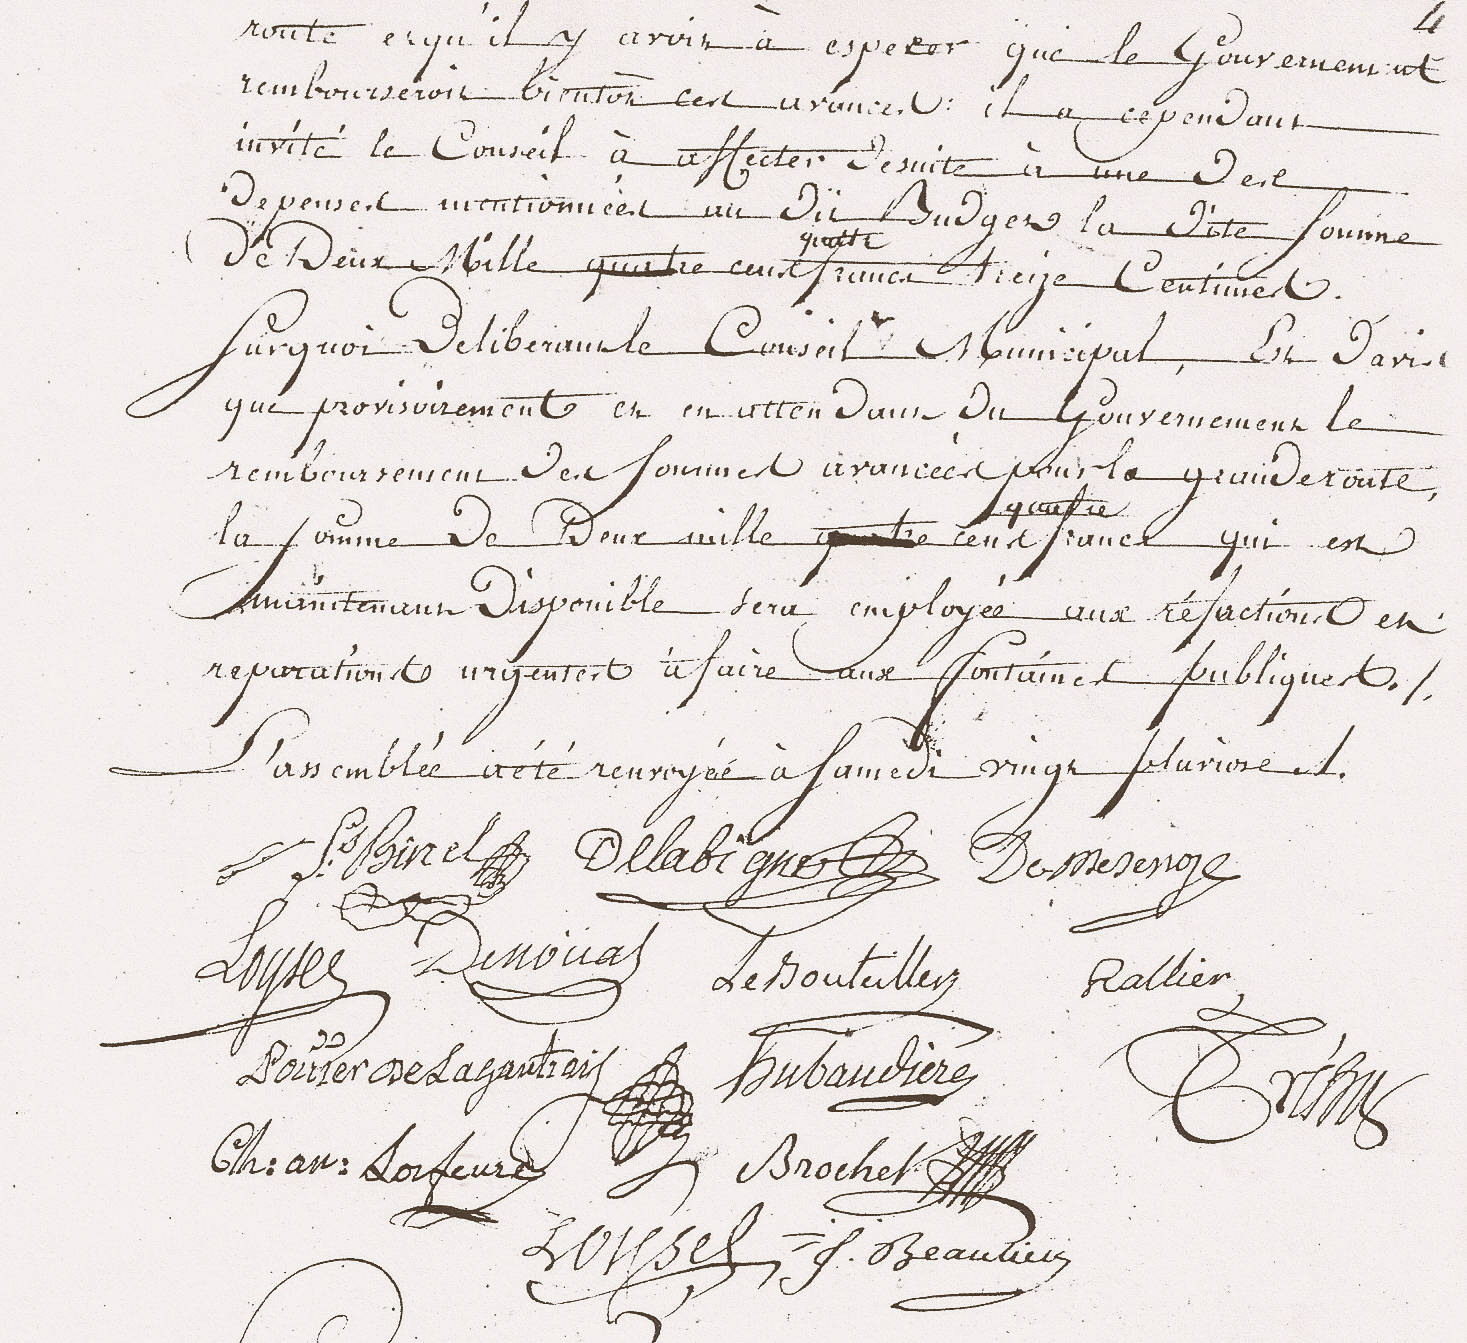 4
route et qu'il y avoit à esperer que le Gouvernement
rembourseroit bientôt ces avances : il a cependant
invité le Conseil à affecter desuite à une des
depenses mentionnées au dit Budget la dite somme
quatre
de Deux Mille quatre cent francs treize Centimes.
Surquoi Deliberant le Conseil Municipal, Est Davis
que provisoirement et en attendant du Gouvernement le
remboursement des sommes avancées pour la grande route,
quatre
la somme de Deux mille quatre cent francs qui est
maintenant Disponible sera employée aux réfactions et
reparations urgentes à faire aux fontaines publiques ./.
L'assemblée a été renvoyée à Samedi vingt pluviose ./.
Binel Delabigne De mesenge
Loysel Denoüal Le Bouteiller Rallier
Pottier de Lagantrais hubaudiere Tréhu
Ch: an: Lorfeuvre Brochet
Loysel f. Beaulieu